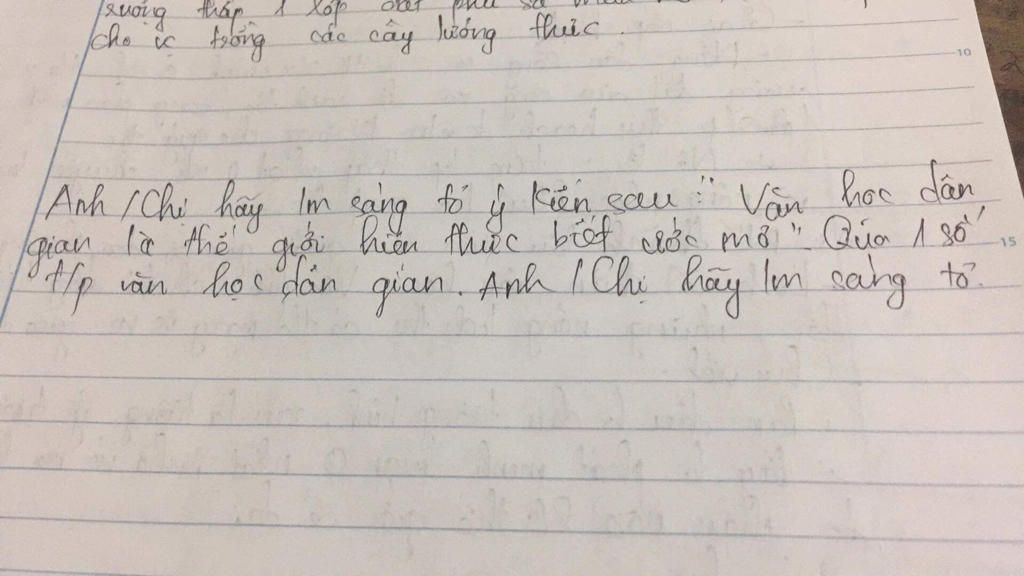 xuống thấp 1 lớp đất phù sa
cho vc trồng các cây lương thực.
10
Anh / Chị hãy lm sáng tỏ ý kiến sau: " Văn học dân
gian là thế giới hiện thực biết ước mơ". Qúa 1 số
15
t/p văn học dân gian. Anh / Chị hãy lm sang tỏ.
2